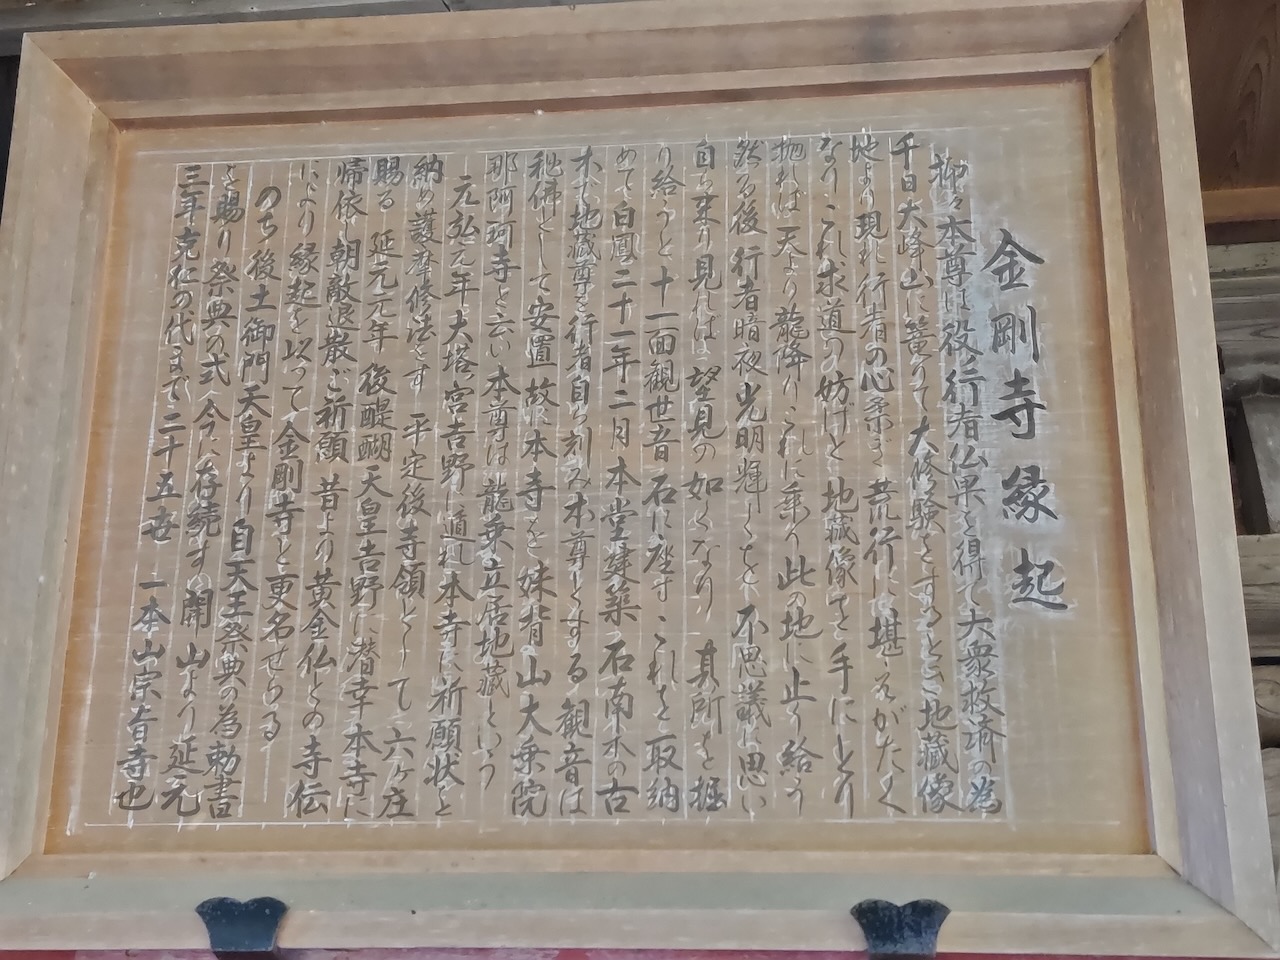 金剛寺縁起
抑々本尊は役行者仏果を得て大衆救済の為
千日大峰山に籠りて大修験をするとき地蔵像
地より現れ行者の心柔ぎ荒行に堪えがたく
なりこれ求道の妨げと地蔵像を手にとり
抛れば天より龍降りこれに乗り此の地に止り給う
然る後行者暗夜光明輝くを不思議に思い
自ら来り見れば望見の如くなり其所を掘
り給うと十一面観世音石に座すこれを取納
めて白鳳二十一年二月本堂建築石南木の古
木で地蔵尊を行者自ら刻み本尊とする観音は
秘佛として安置故に本寺を妹背山大乗院
那阿珂寺と云い本尊は龍乗立居地蔵という
元弘元年大塔宮吉野に遁れ本寺に祈願状を
納め護摩修法をす平定後寺領として六ヶ庄
賜る 延元元年後醍醐天皇吉野に潜幸本寺に
帰依し朝敵退散ご祈願 昔より黄金仏との寺伝
により縁起を以って金剛寺と更名せらる
のち後土御門天皇より自天王祭典の為勅書
を賜り祭典の式今に存続す 開山より延元
三年克仁の代まで二十五世 一本山宗旨寺也